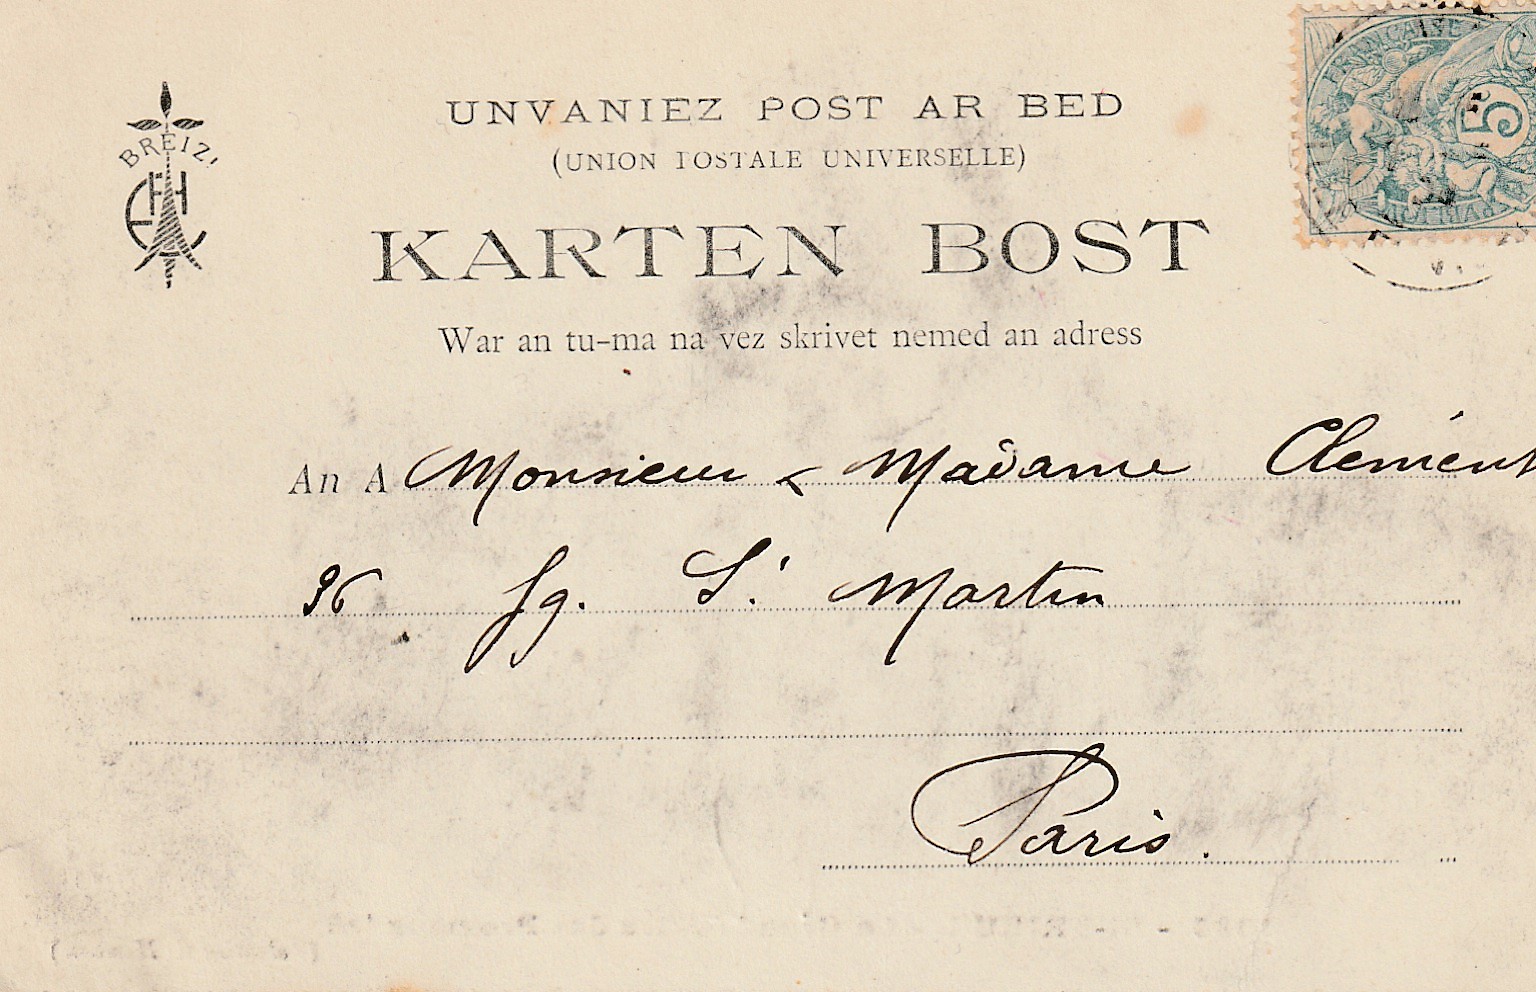 FRANÇAISE
5
UNVANIEZ POST AR BED
(UNION POSTALE UNIVERSELLE)
BREIZ!
EHC
KARTEN BOST
War an tu-ma na vez skrivet nemed an adress
An A Monsieur & Madame Clément
96 fg. St Martin
Paris.